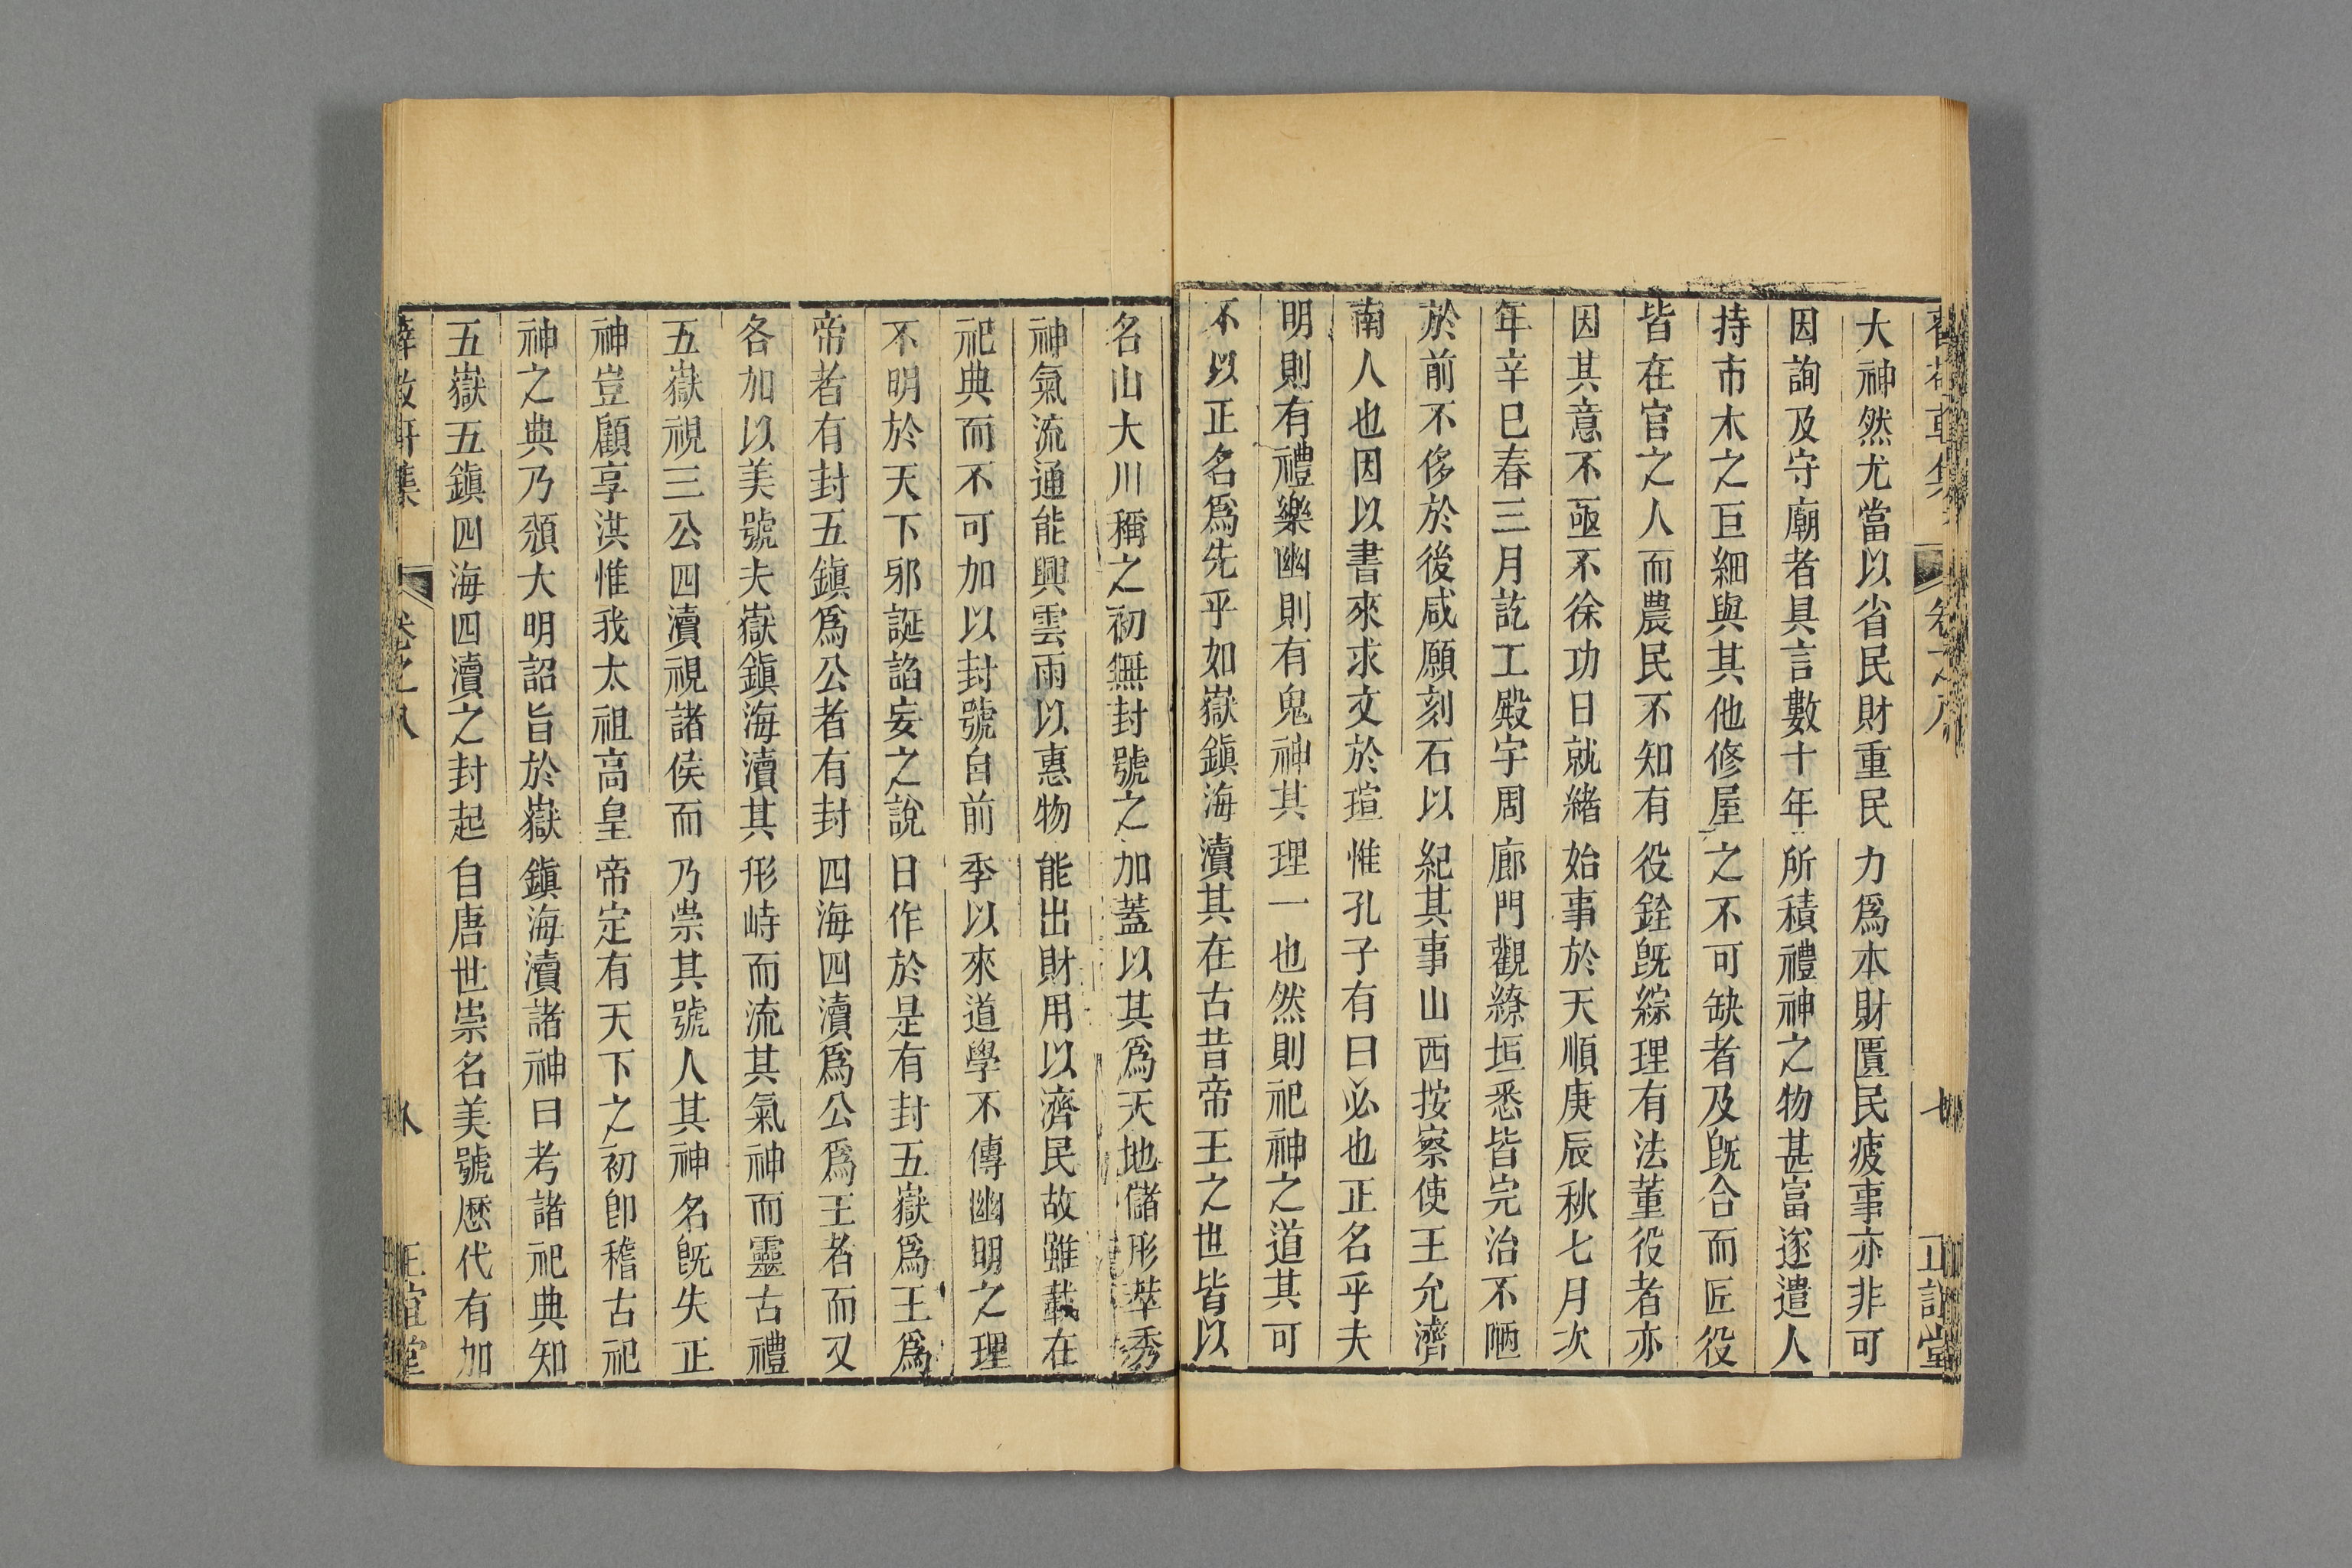 大神然尤當以省民財重民力爲本財匱民疲事亦非可
因詢及守廟者具言數十年所積禮神之物甚富遂遣人
持市木之巨細與其他修屋之不可缺者及旣合而匠役
皆在官之人而農民不知有役銓旣綜理有法董役者亦
因其意不亟不徐功日就緒始事於天順庚辰秋七月次
年辛巳春三月訖工殿宇周廊門觀繚垣悉皆完治不陋
於前不侈於後咸願刻石以紀其事山西按察使王允濟
南人也因以書來求文於瑄惟孔子有曰必也正名乎夫
明則有禮樂幽則有鬼神其理一也然則祀神之道其可
不以正名爲先乎如嶽鎭海瀆其在古昔帝王之世皆以
名山大川稱之初無封號之加蓋以其爲天地儲形萃秀
神氣流通能興雲雨以惠物能出財用以濟民故雖載在
祀典而不可加以封號自前季以來道學不傳幽明之理
不明於天下邪誕諂妄之說日作於是有封五嶽爲王爲
帝者有封五鎭爲公者有封四海四瀆爲公爲王者而又
各加以美號夫嶽鎭海瀆其形峙而流其氣神而靈古禮
五嶽視三公四瀆視諸侯而乃崇其號人其神名旣失正
神豈顧享洪惟我太祖高皇帝定有天下之初卽稽古祀
神之典乃頒大明詔旨於嶽鎭海瀆諸神曰考諸祀典知
五嶽五鎭四海四瀆之封起自唐世崇名美號歷代有加
薛敬軒集 卷之八 八 正誼堂